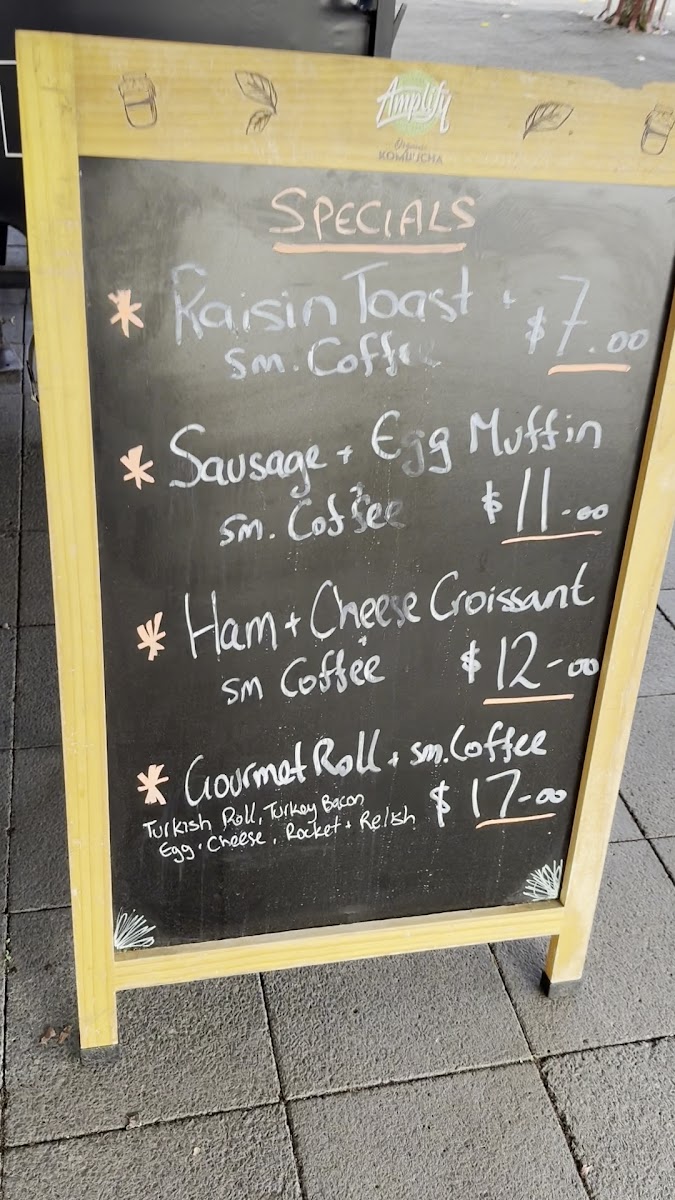 Amplify
Organic
KOMBUCHA
SPECIALS
* Raisin Toast + $7.00
sm. Coffee
* Sausage + Egg Muffin
+
sm. Coffee $11-00
* Ham + Cheese Croissant
+
sm Coffee $12-00
* Gourmet Roll + sm. Coffee
Turkish Roll, Turkey Bacon $17-00
Egg, Cheese, Rocket + Relish